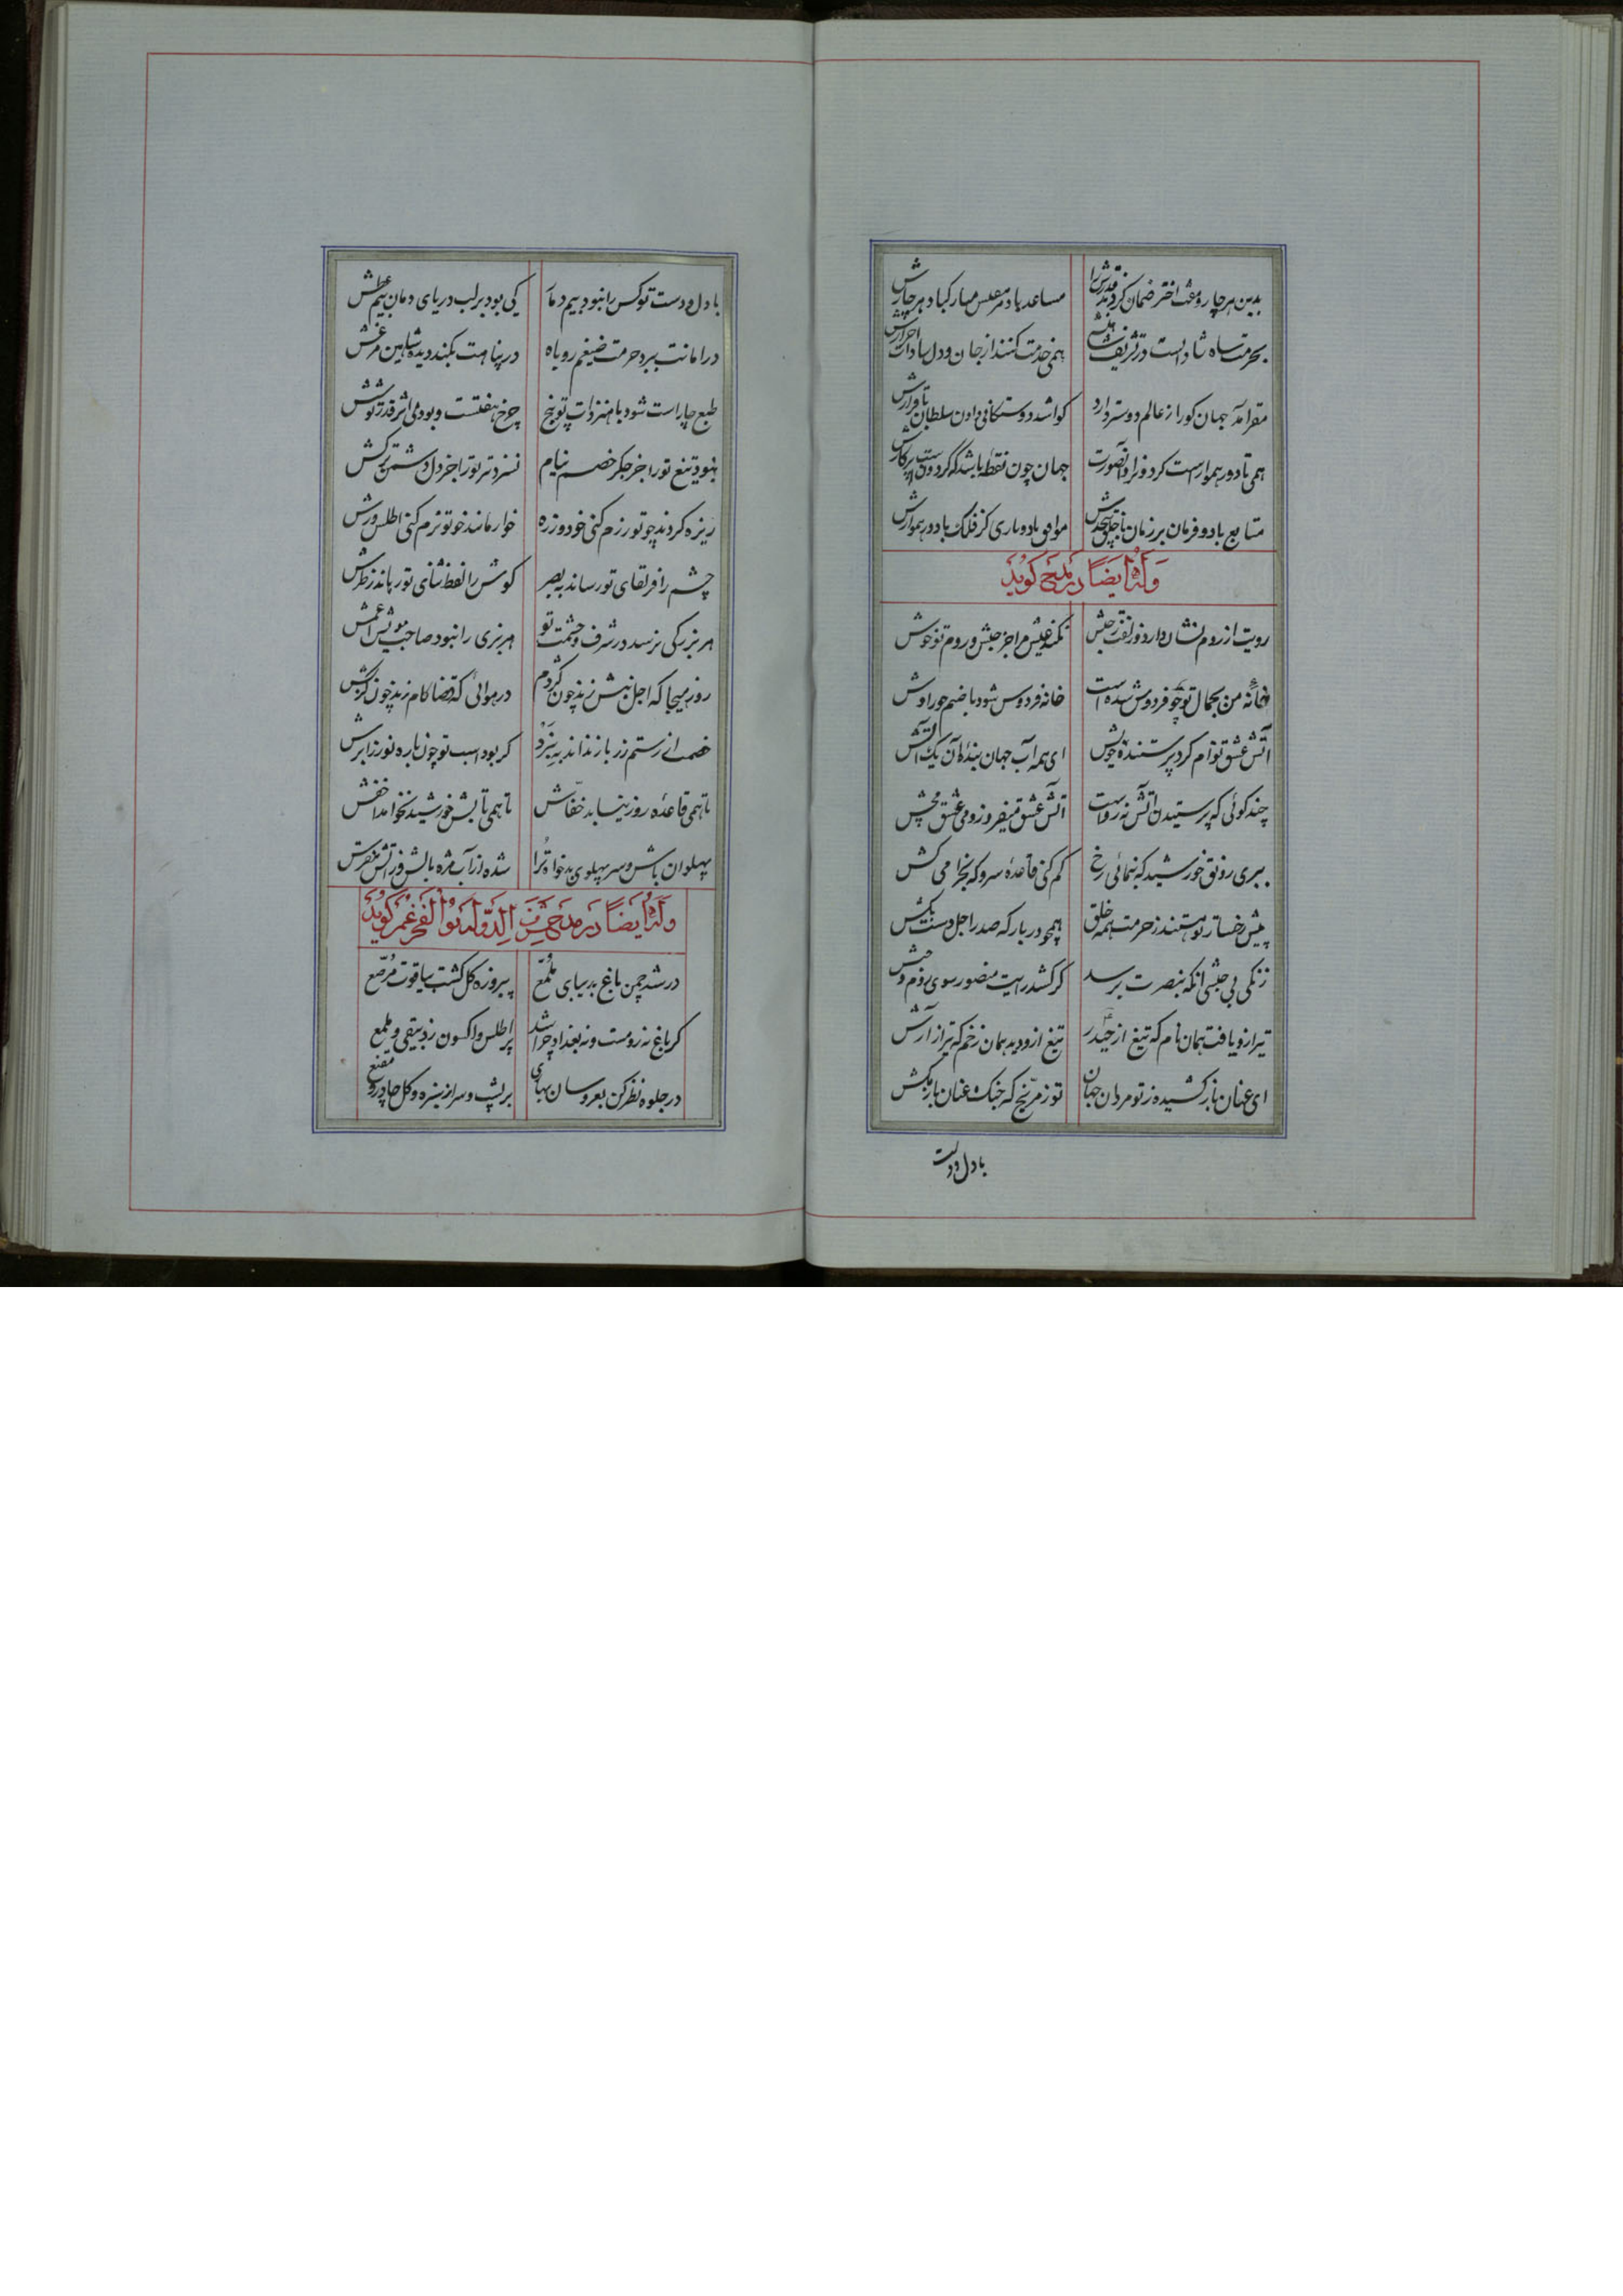 بدین هر چار و هفت اختر ضمان کردند قدرش را مساعد باد هر هفتش مبارک باد هر چارش
همی خدمت کنند از جان و دل سادات احرارش
مقر آمد جهان کو را ز عالم دوستر دارد
همی تا دور هموارست گردون را و آنصورت جهان چون نقطه باشد که گردونست پرگارش
متابع باد و فرمان بر زمان موافق باد و یاری گر فلک با دور هموارش
وله ایضاً در مدح گوید
رویت از روم نشان دارد و زلفت ز حبش نکند عیش مرا جز حبش و روم تو خوش
خانه من بجمال تو چو فردوس شده است خانه فردوس شود با صنم حوراوش
آتش عشق توام کرد پرستنده خویش ای همه آب جهان بنده آن یک آتش
چند گوئی که پرستیدن آتش نه رواست آتش عشق میفروز و می عشق مچش
ببری رونق خورشید که بنمائی رخ کم کنی قاعده سرو که بخرامی کش
پیش رخسار تو هستند ز حرمت همه خلق همچو در بارگه صدر اجل دست بکش
زنگی بی حبشی انکه بنصرت برسد گر کشد رایت منصور سوی روم و حبش
تیر ازو یافت همان نام که تیغ از حیدر تیغ ازو دید همان زخم که تیر از آرش
ای عنان باز کشیده ز تو مردان جهان تو ز مریخ که جنک عنان باز مکش
با دل و دست
با دل و دست تو کس را نبود بیم دمار کی بود بر لب دریای دمان بیم عطش
در امانت ببرد حرمت ضیغم روباه در پناهت بکند دیده شاهین مرغش
طبع چار است شود با هنر ذات تو پنج چرخ هفتست و بود بی اثر قدر تو شش
نبود تیغ تو را جز جگر خصم نیام نسزد تیر تو را جز دل دشمن ترکش
ریزه کردند چو تو رزم کنی خود و زره خوار مانند چو تو بزم کنی اطلس و وش
چشم را فر لقای تو رساند به بصر گوش را لفظ ثنای تو رهاند ز طرش
هر بزرگی نرسد در شرف و حشمت تو هر نبی را نبود صاحب موسی
روز هیجا که اجل نیش زند چون کژدم در هوائی که قضا کام زند چون کربش
خصمت از رستم زر باز نداند به نبرد گر بود اسب تو چون باره نوزر ابرش
تا همی قاعده روز نیابد خفاش تا همی تابش خورشید نخواهد اخفش
پهلوان باش و سر پهلوی بدخواه ترا شده از آب مژه بالش و ز آتش مفرش
وله ایضاً در مدح شرف الدوله ابو الفخر عمر گوید
در شد چمن باغ بدیبای ملمع پیروزه گل گشت بیاقوت مرصع
گر باغ نه رومست و نه بغداد چرا شد پر اطلس و اکسون ز دبیقی و ملمع
در جلوه نظر کن بعروسان بهاری بر پشت و سر از سبزه و گل چادر و مقنع